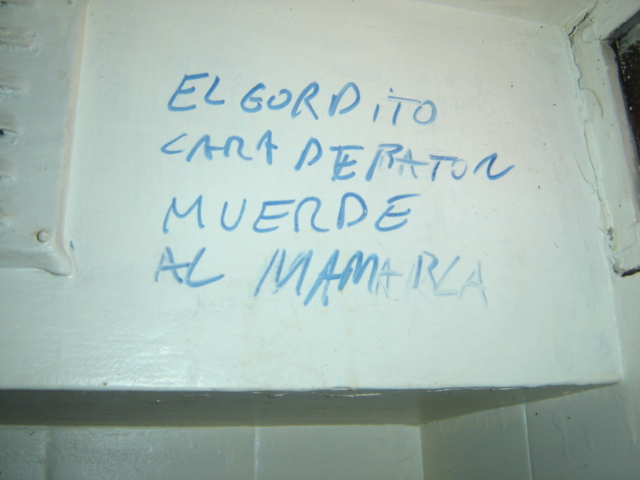 EL GORDiTO
CARA DE RATON
MUERDE
AL MAMARLA